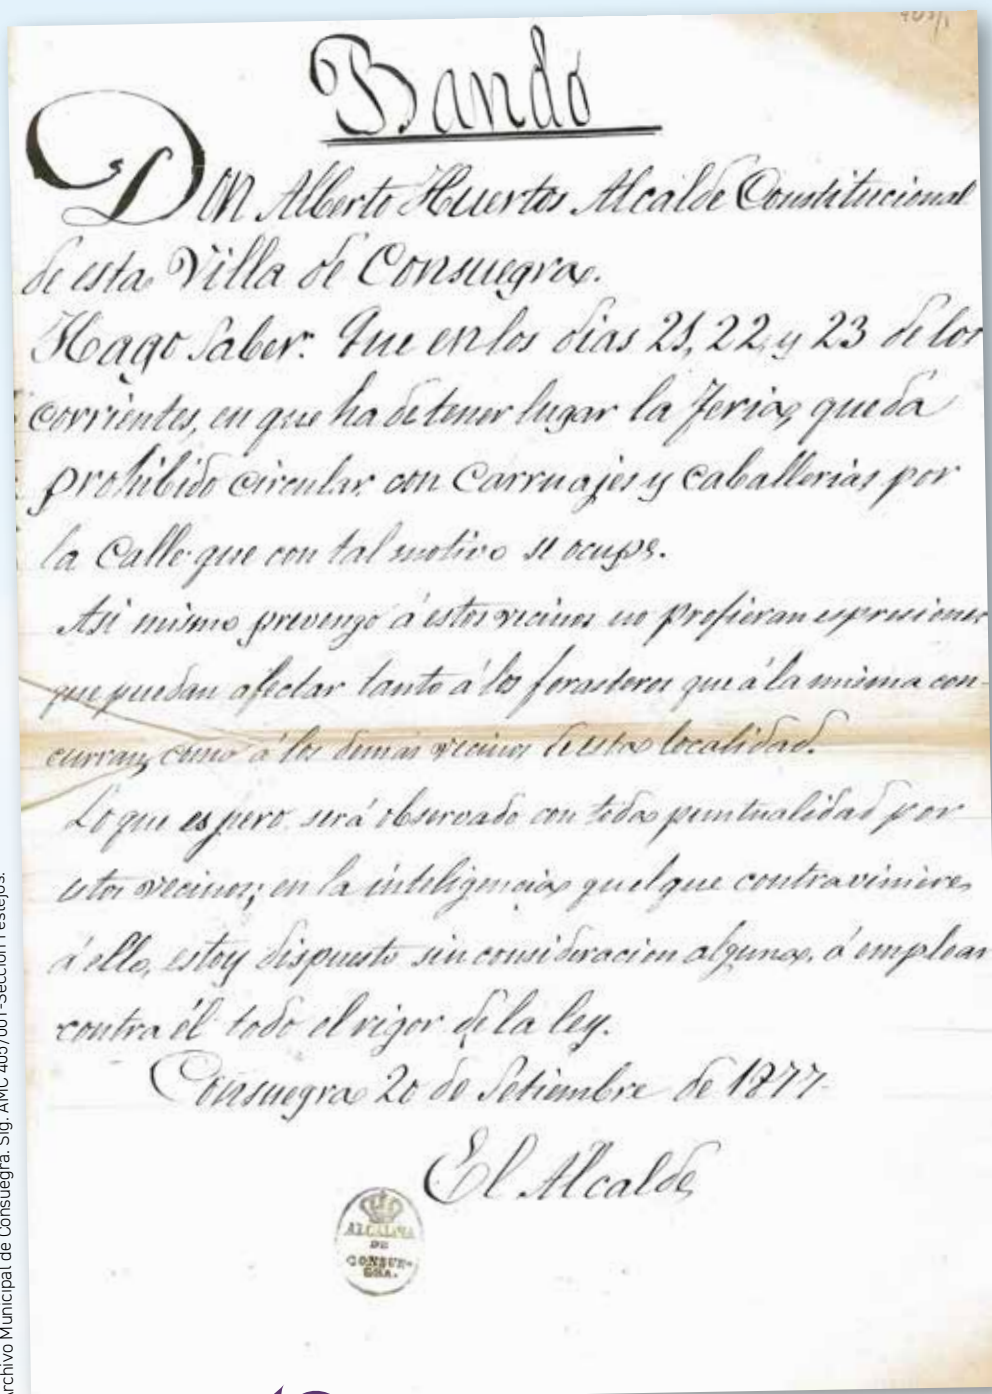 Bando
Don Alberto Huertos Alcalde Constitucional
de esta Villa de Consuegra.
Hago Saber: Que en los dias 21, 22, y 23 de los
corrientes, en que ha de tener lugar la Feria, queda
prohibido circular con Carruajes y caballerias por
la Calle que con tal motivo se ocupe.
Asi mismo prevengo á estos vecinos no profieran espresiones
que puedan afectar tanto á los forasteros que á la misma con-
curran, como á los demás vecinos de esta localidad.
Lo que espero será observado con toda puntualidad por
estos vecinos; en la inteligencia que el que contraviniere
á ello, estoy dispuesto sin consideracion alguna, á emplear
contra él todo el rigor de la ley.
Consuegra 20 de Setiembre de 1877
El Alcalde
ALCALDIA
DE
CONSUE-
GRA.
Archivo Municipal de Consuegra. Sig. AMC 405/001-Sección Festejos.